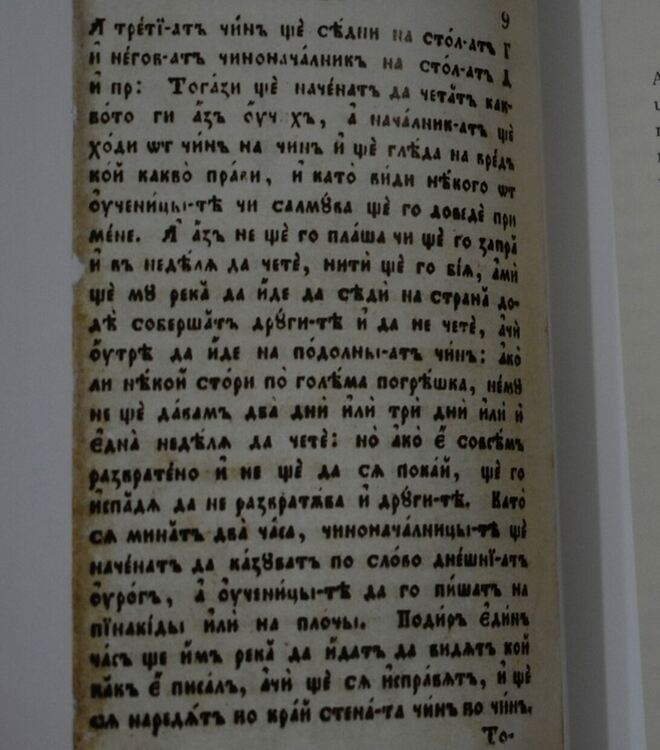 9
А҆ тре́тїй-атъ чи́нъ щѐ сѣ́дни на сто́л-атъ Г
и҆ не́гов-атъ чинонача́лник на сто́л-атъ Д
и҆ пр: Тога́зи щѐ наче́натъ да чета́тъ как-
во́то ги а҆́зъ о҆у́ч хъ, а҆ нача́лник-атъ щѐ
хо́ди ѿт чи́нъ на чи́нъ и҆ щѐ глѣ́да на вре́дъ
ко́й какво̀ пра́ви, и҆ като̀ ви́ди нѣ́кого ѿт
о҆учени́цы-тѣ чи салмꙋ́ва щѐ го доведѐ при
ме́не. А҆ а҆́зъ не щѐ го пла́ша чи щѐ го запра̀
и҆ въ недѣ́ля да четѐ, нити̂ щѐ го бі́я, а҆мѝ
щѐ мꙋ река̀ да и҆́де да сѣди̂ на страна̀ до-
дѣ̀ соверша́тъ дрꙋ́ги-тѣ и҆ да не четѐ, а҆чѝ
о҆у́трѣ да и҆́де на по́долны-атъ чи́нъ: а҆ко̀
ли нѣ́кой сто́ри по̀ голѣ́ма погрѣ́шка, не́мꙋ
не щѐ да́вамъ два̀ дни̂ и҆лѝ три̂ дни̂ и҆лѝ и҆
є҆дна̀ недѣ́ля да четѐ: но̀ а҆ко̀ є҆̀ совсѣ́мъ
развратѐно и҆ не щѐ да ся пока́й, щѐ го
и҆спа́дѧ да не развратѧ́ва и҆ дрꙋ́ги-тѣ. Като̀
сѧ мина́тъ два̀ ча́са, чинонача́лницы-тѣ щѐ
наче́натъ да ка́зꙋватъ по сло́во дне́шнї-атъ
о҆уро́гъ, а҆ о҆учени́цы-тѣ да го пи́шатъ на
пїнакі́ды и҆лѝ на пло́чы. Поди́ръ є҆ди́нъ
ча́съ ще и҆́мъ река̀ да и҆́датъ да ви́дятъ кой
ка́къ є҆̀ писа́лъ, а҆чѝ щѐ сѧ и҆спра́вѧтъ, и҆ щѐ
сѧ наредѧ́тъ во кра́й стена́-та чи́нъ во чи́нъ.
То-